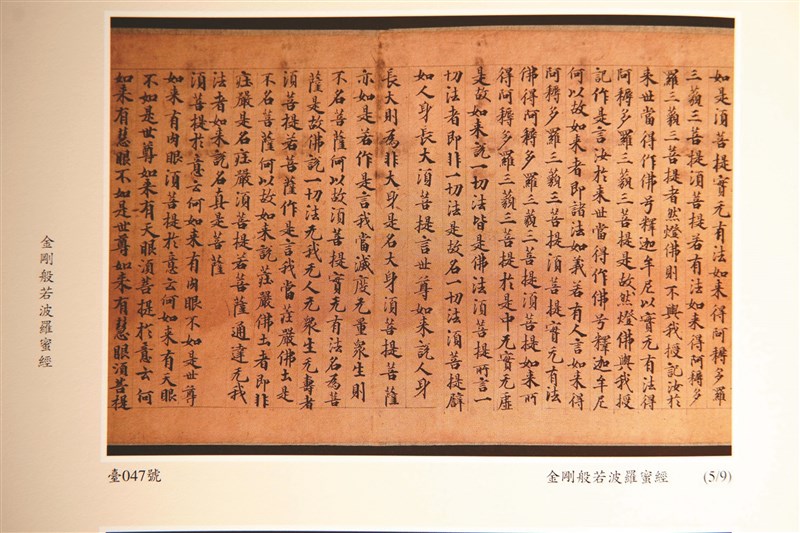 如是須菩提實无有法如來得阿耨多羅
三藐三菩提須菩提若有法如來得阿耨多
羅三藐三菩提者然燈佛則不與我授記汝於
來世當得作佛号釋迦牟尼以實无有法得
阿耨多羅三藐三菩提是故然燈佛與我授
記作是言汝於來世當得作佛号釋迦牟尼
何以故如來者即諸法如義若有人言如來得
阿耨多羅三藐三菩提須菩提實无有法
佛得阿耨多羅三藐三菩提須菩提如來所
得阿耨多羅三藐三菩提於是中无實无虛
是故如來說一切法皆是佛法須菩提所言一
切法者即非一切法是故名一切法須菩提辟
如人身長大須菩提言世尊如來說人身
長大則為非大身是名大身須菩提菩薩
亦如是若作是言我當滅度无量眾生則
不名菩薩何以故須菩提實无有法名為菩
薩是故佛說一切法无我无人无眾生无壽者
須菩提若菩薩作是言我當莊嚴佛土是
不名菩薩何以故如來說莊嚴佛土者即非
莊嚴是名莊嚴須菩提若菩薩通達无我
法者如來說名真是菩薩
須菩提於意云何如來有肉眼不如是世尊
如來有肉眼須菩提於意云何如來有天眼
不如是世尊如來有天眼須菩提於意云何
如來有慧眼不如是世尊如來有慧眼須菩提
金剛般若波羅蜜經
臺047號
金剛般若波羅蜜經 (5/9)